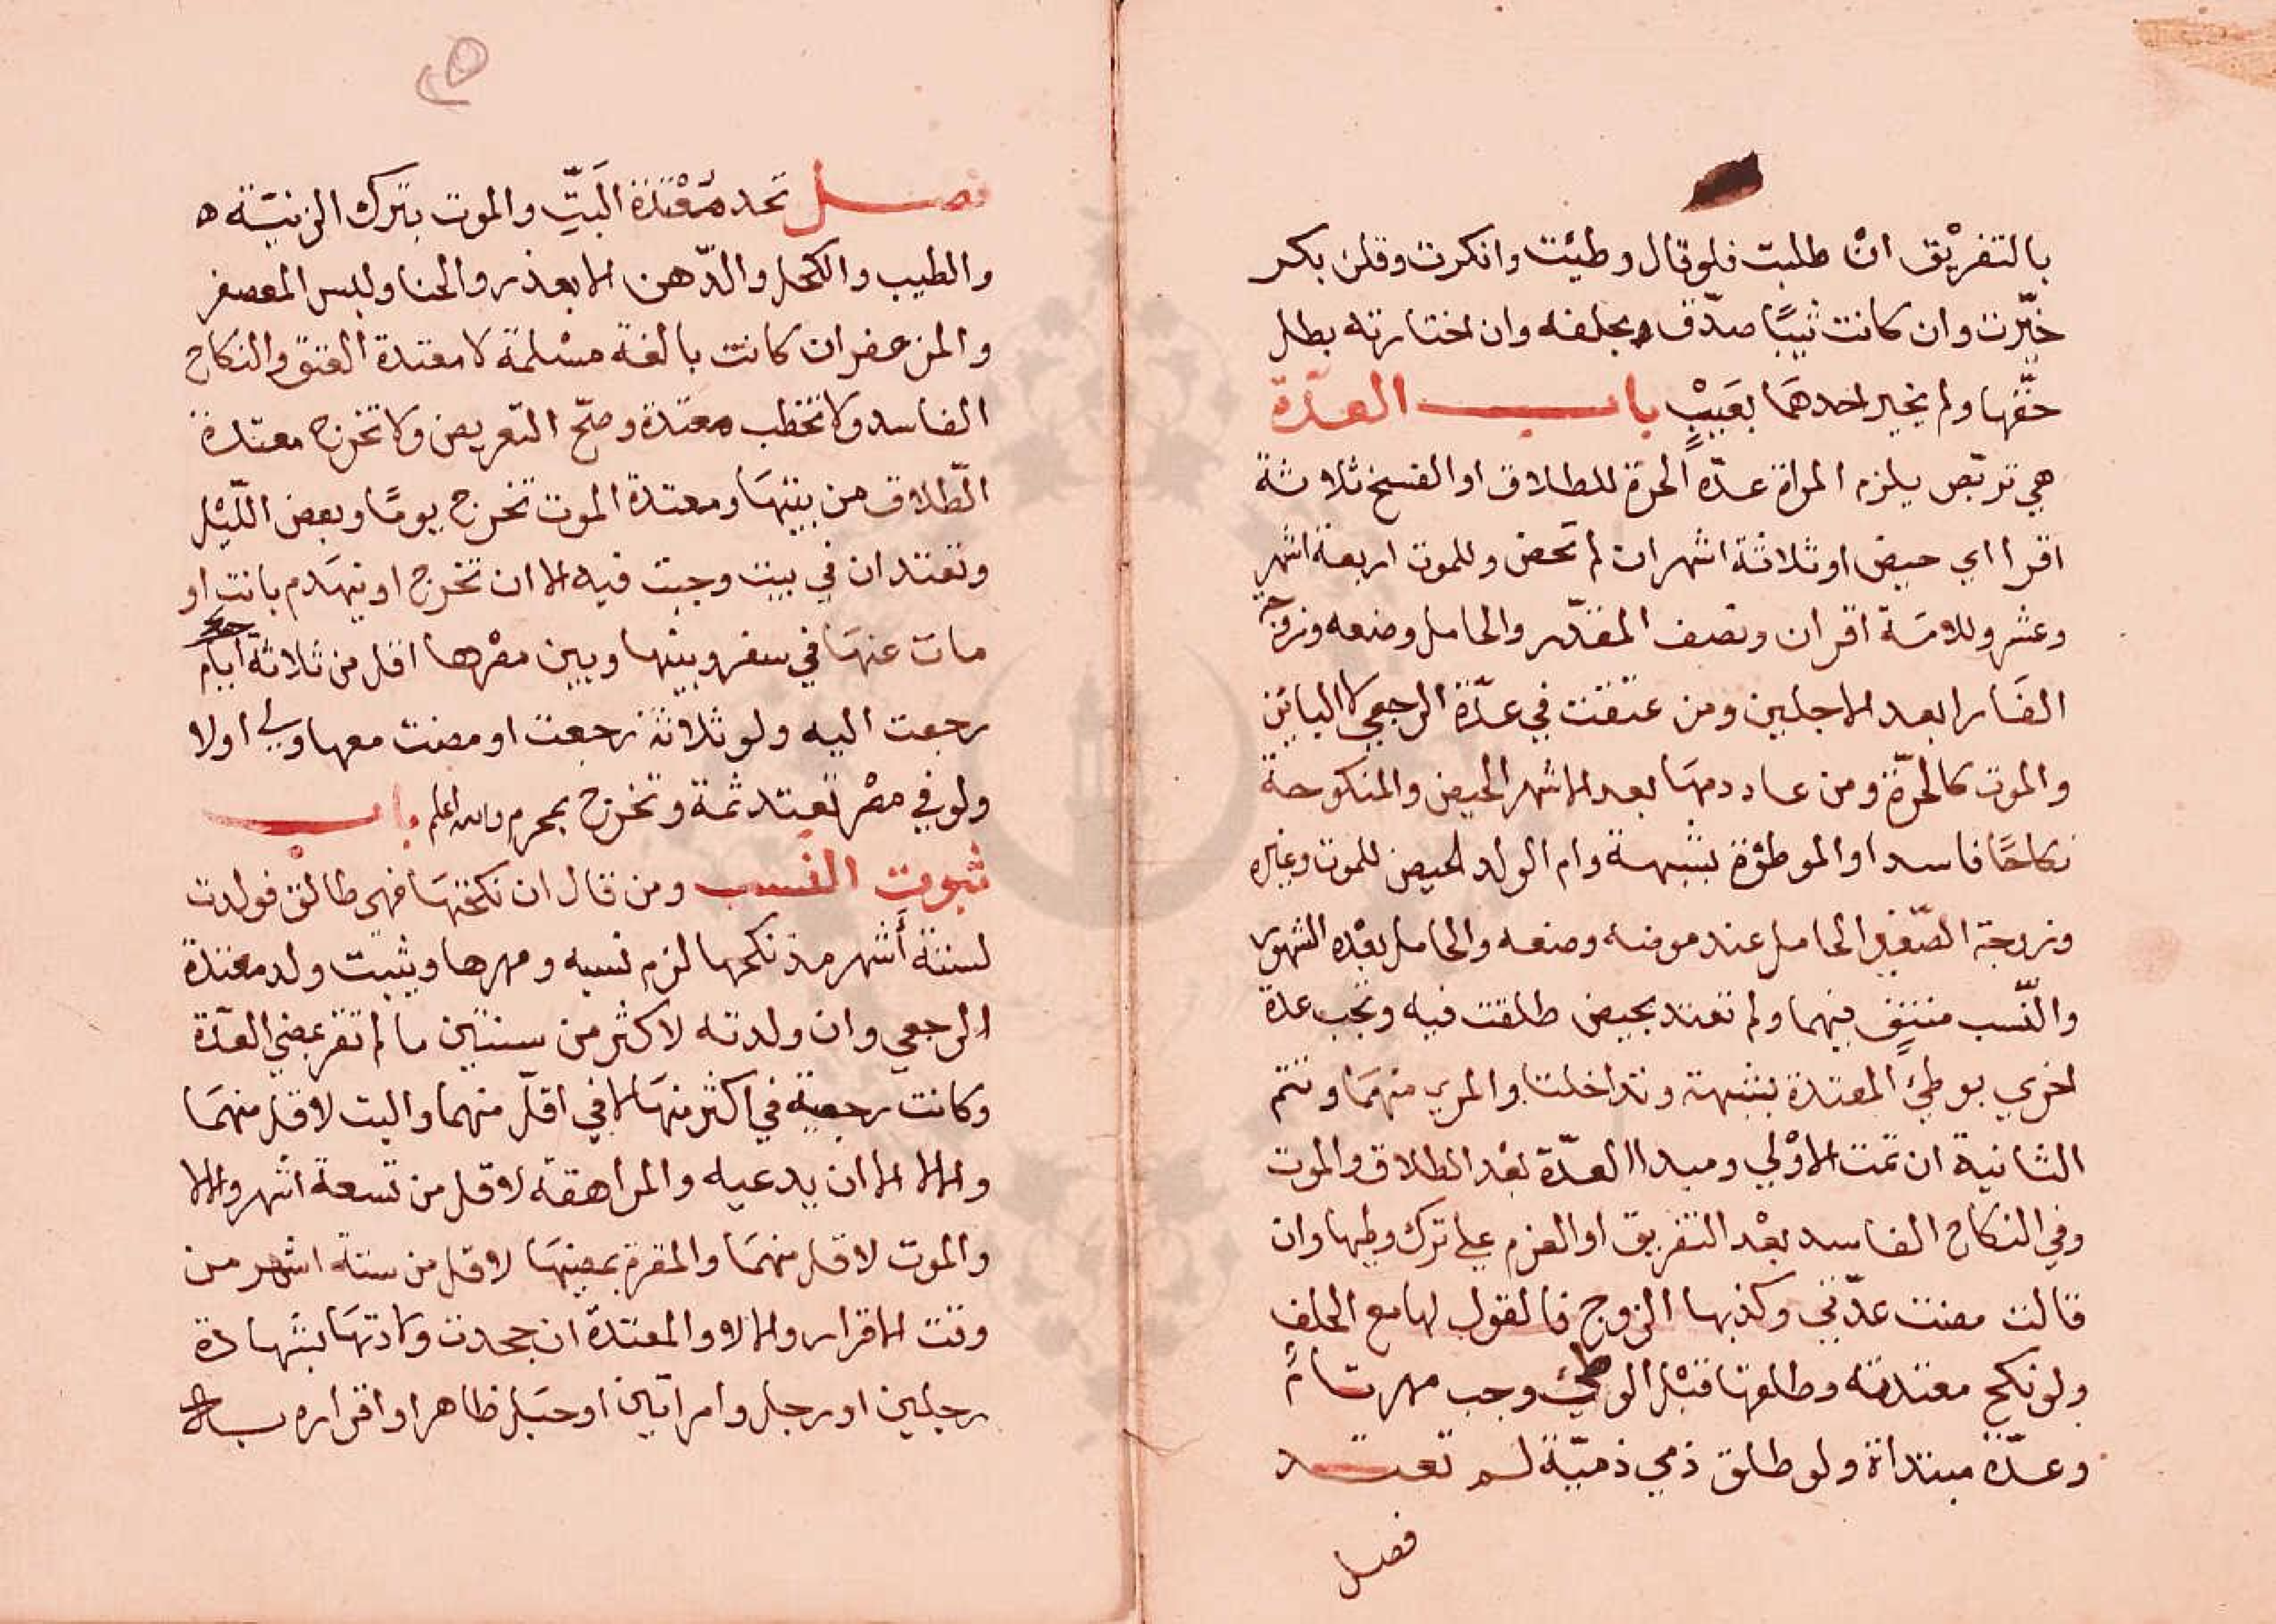 بالتفريق ان طلبت فلو قال وطيئت وانكرت وقلن بكر
خيّرت وان كانت ثيبًا صدّق بحلفه وان اختارته بطل
حقّها ولم يخير احدهما بعَيبٍ باب العدّة
هي تربّص يلزم المراة عدّة الحرّة للطلاق او الفسخ ثلاثة
اقرا اي حيض او ثلاثة اشهر ان لم تحض وللموت اربعة اشهر
وعشر وللامة اقران ونصف المقدّر والحامل وضعه وزوجة
الفار ابعد الاجلين ومن عتقت في عدّة الرجعي لا البائن
والموت كالحرّة ومن عاد دمها بعد الاشهر الحيض والمنكوحة
نكاحًا فاسدا والموطؤة بشبهة وام الولد الحيض للموت وغيره
وزوجة الصّغير الحامل عند موته وضعه والحامل بعْده الشهور
والنّسب منتفٍ فيهما ولم تعتد بحيض طلقت فيه وتجب عدة
اخري بوطئ المعتدة بشبهة وتداخلتا والمري منهما وتتم
الثانية ان تمت الاوْلي ومبدا العدّة بعْد الطلاق والموت
وفي النكاح الفاسد بعْد التفريق او العزم علي ترك وطيها وان
قالت مضت عدّتي وكذبها الزوج فالقول لها مع الحلف
ولو نكح معتدته وطلقها قبْل الوطئ وجب مهر تام
وعدّة مبتداة ولو طلق ذمي ذميّة لم تعتد
فصل
فصل تحد معْتدة البَتِّ والموت بترك الزينة
والطيب والكحل والدّهن الا بعذر والحنا ولبس المعصفر
والمزعفر ان كانت بالغة مسْلمة لا معتدة العتق والنكاح
الفاسد ولا تخطب معتدة وصحّ التّعريض ولا تخرج معتدة
الطّلاق من بيتها ومعتدة الموت تخرج يومًا وبعض اللّيْل
وتعتدان في بيت وجبت فيه الا ان تخرج او ينهَدم بانت او
مات عنها في سفر وبينها وبين مصْرها اقل من ثلاثة ايام
رجعت اليه ولو ثلاثة رجعت او مضت معها ولي اولا
ولو في مصْر تعتد ثمة وتخرج بمحرم والله اعلم باب
ثبوت النّسب ومن قال ان نكحتها فهي طالق فولدت
لستة أشهر مذ نكحها لزم نسبه ومهرها ويثبت ولد معتدة
الرجعي وان ولدته لاكثر من سنتين ما لم تقر بمضي العدّة
وكانت رجعية في اكثر منها لا في اقلّ منهما والبت لاقل منهما
والا لا الا ان يدعيه والمراهقة لاقل من تسعة اشهر والا لا
والموت لاقل منهما والمقرة بمضيها لاقل من ستة اشهر من
وقت الاقرار والا لا والمعتدّة ان جحدت ولادتها بشهادة
رجلين او رجل وامراتين او حبَل ظاهر او اقراره به